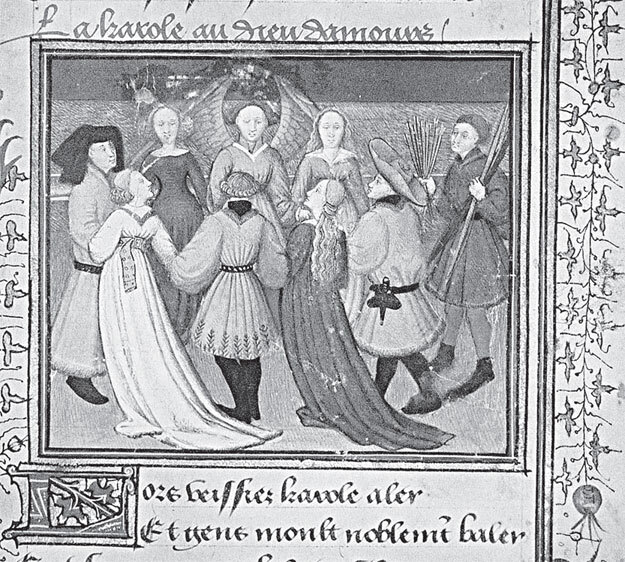 La karole au dieu damours
Lors veissiez karole aler
Et gens moult noblemt baler